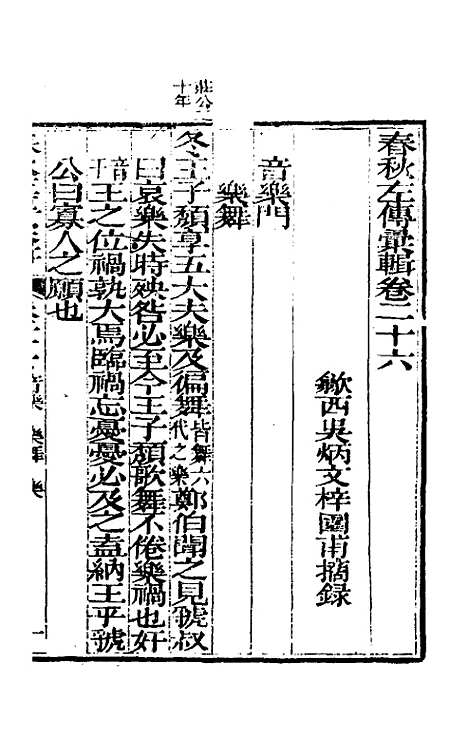 春秋左傳彙輯卷二十六
歙西吳炳文梓園甫摘録
音樂門
樂舞
莊公二
十年
冬王子頽享五大夫樂及徧舞皆舞六代之樂鄭伯聞之見虢叔
曰哀樂失時殃咎必至今王子頽歌舞不倦樂禍也奸
音干王之位禍孰大焉臨禍忘憂憂必及之盍納王乎虢
公曰寡人之願也
音樂 樂舞 樂 一